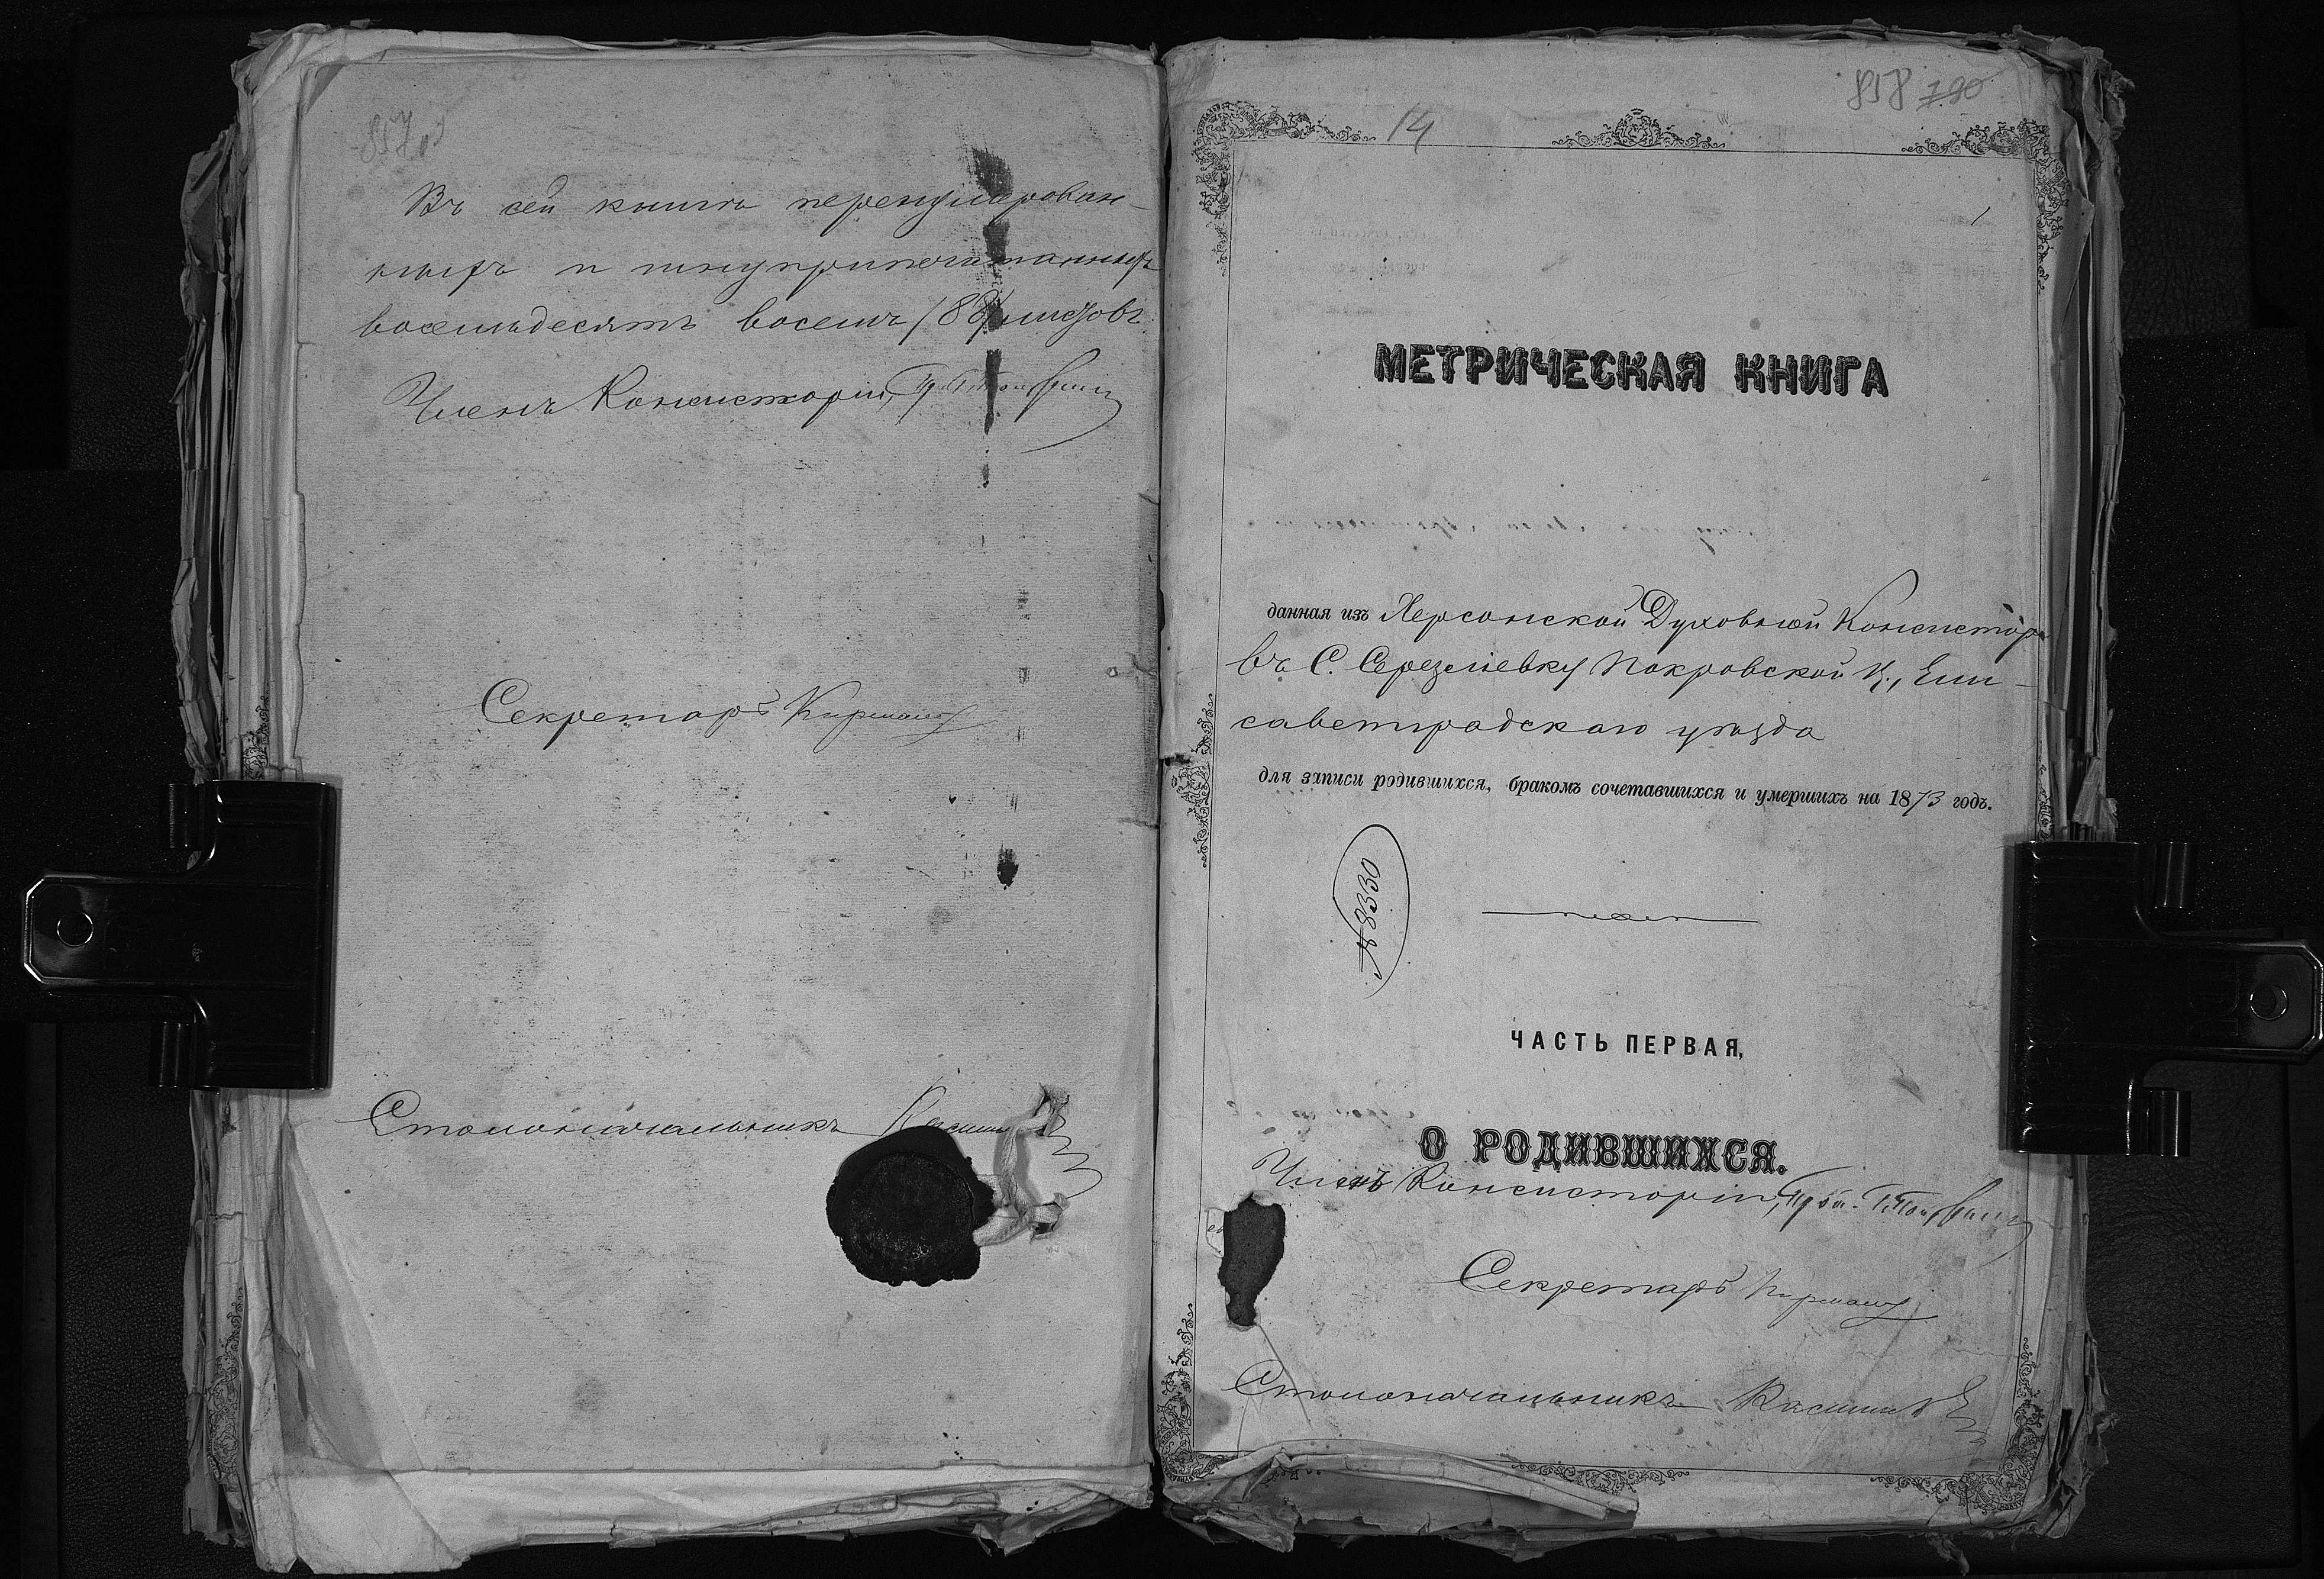 857 об
Въ сей книгѣ перенумерован-
ныхъ и шнуприпечатанныхъ
восемьдесятъ восемь /88/ листовъ.
Членъ Консисторіи, Прот.
Секретарь
Столоначальникъ
858 790
14
1
МЕТРИЧЕСКАЯ КНИГА
данная изъ Херсонской Духовной Консистор
въ С. Серезліевку Покровской ц., Ели-
саветградскаго уѣзда
для записи родившихся, бракомъ сочетавшихся и умершихъ на 1873 годъ.
№ 8330
ЧАСТЬ ПЕРВАЯ,
О РОДИВШИХСЯ.
Членъ Консисторіи, Прот.
Секретарь
Столоначальникъ